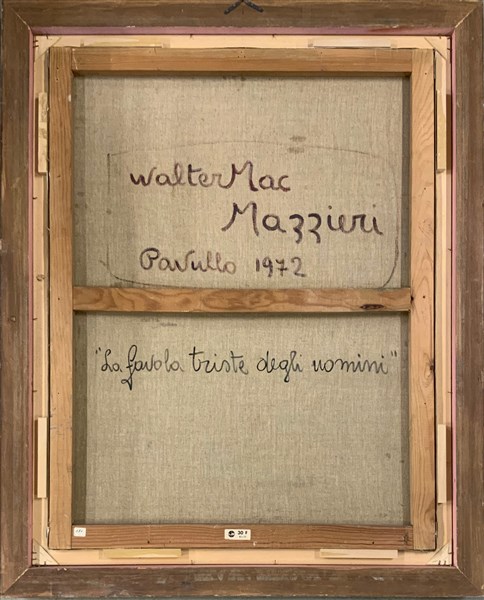 walter Mac
Mazzieri
Pavullo 1972
"La favola triste degli uomini"
20 F